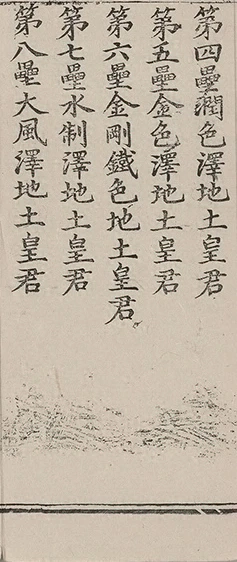 第四壘潤色澤地土皇君
第五壘金色澤地土皇君
第六壘金剛鐵色地土皇君
第七壘水制澤地土皇君
第八壘大風澤地土皇君